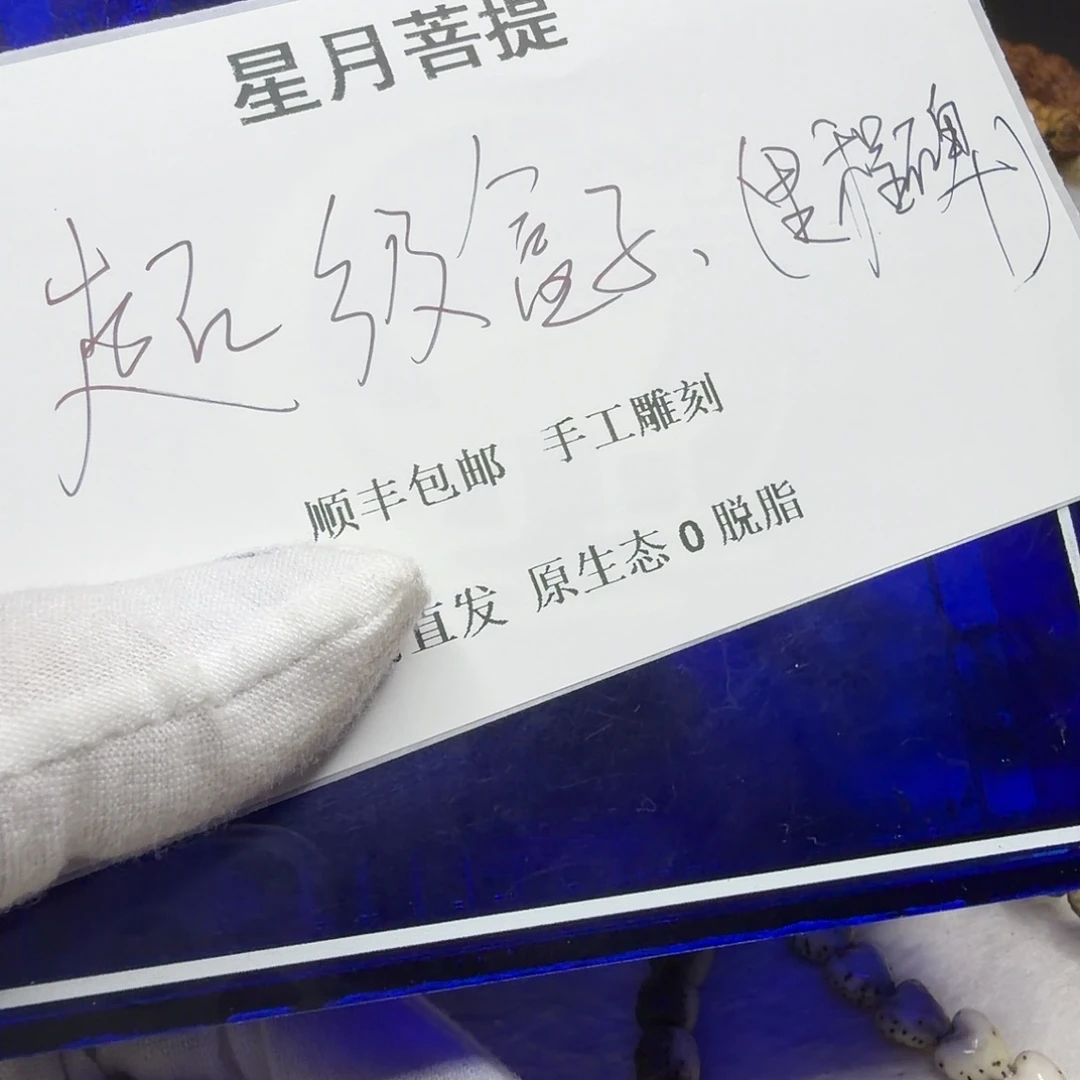 星月菩提
超级盒子、(里程碑)
顺丰包邮 手工雕刻
直发 原生态0脱脂